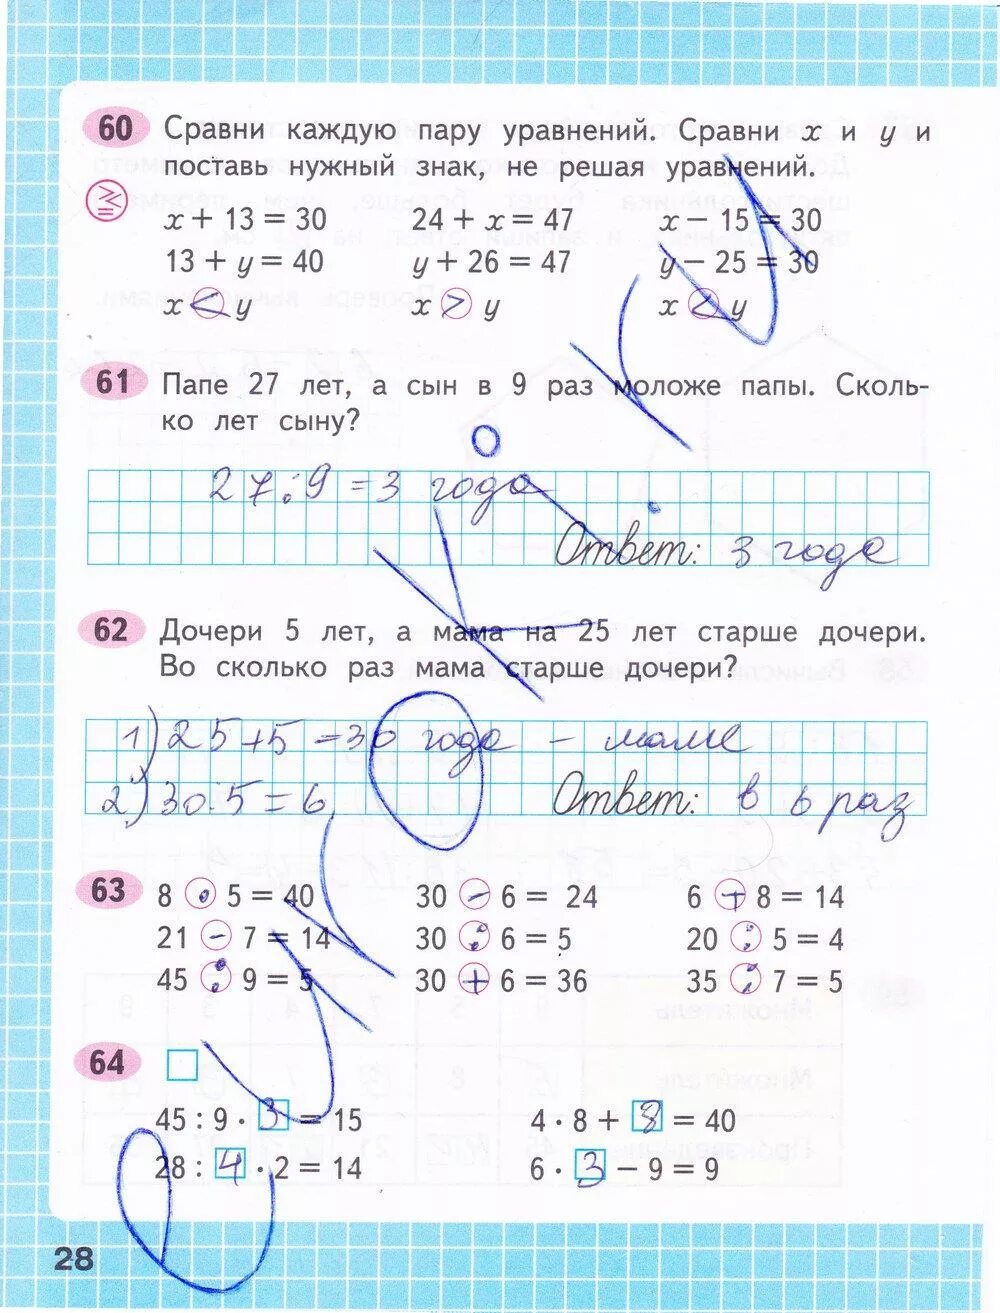 60 Сравни каждую пару уравнений. Сравни x и y и
поставь нужный знак, не решая уравнений.
x + 13 = 30 24 + x = 47 x − 15 = 30
13 + y = 40 y + 26 = 47 y − 25 = 30
x < y x > y x < y
61 Папе 27 лет, а сын в 9 раз моложе папы. Сколь-
ко лет сыну?
27:9 = 3 года
Ответ: 3 года
62 Дочери 5 лет, а мама на 25 лет старше дочери.
Во сколько раз мама старше дочери?
1) 25+5 = 30 года − маме
2) 30:5 = 6 Ответ: в 6 раз
63 8 · 5 = 40 30 − 6 = 24 6 + 8 = 14
21 − 7 = 14 30 : 6 = 5 20 : 5 = 4
45 : 9 = 5 30 + 6 = 36 35 : 7 = 5
64
45 : 9 · 3 = 15 4 · 8 + 8 = 40
28 : 4 · 2 = 14 6 · 3 − 9 = 9
28